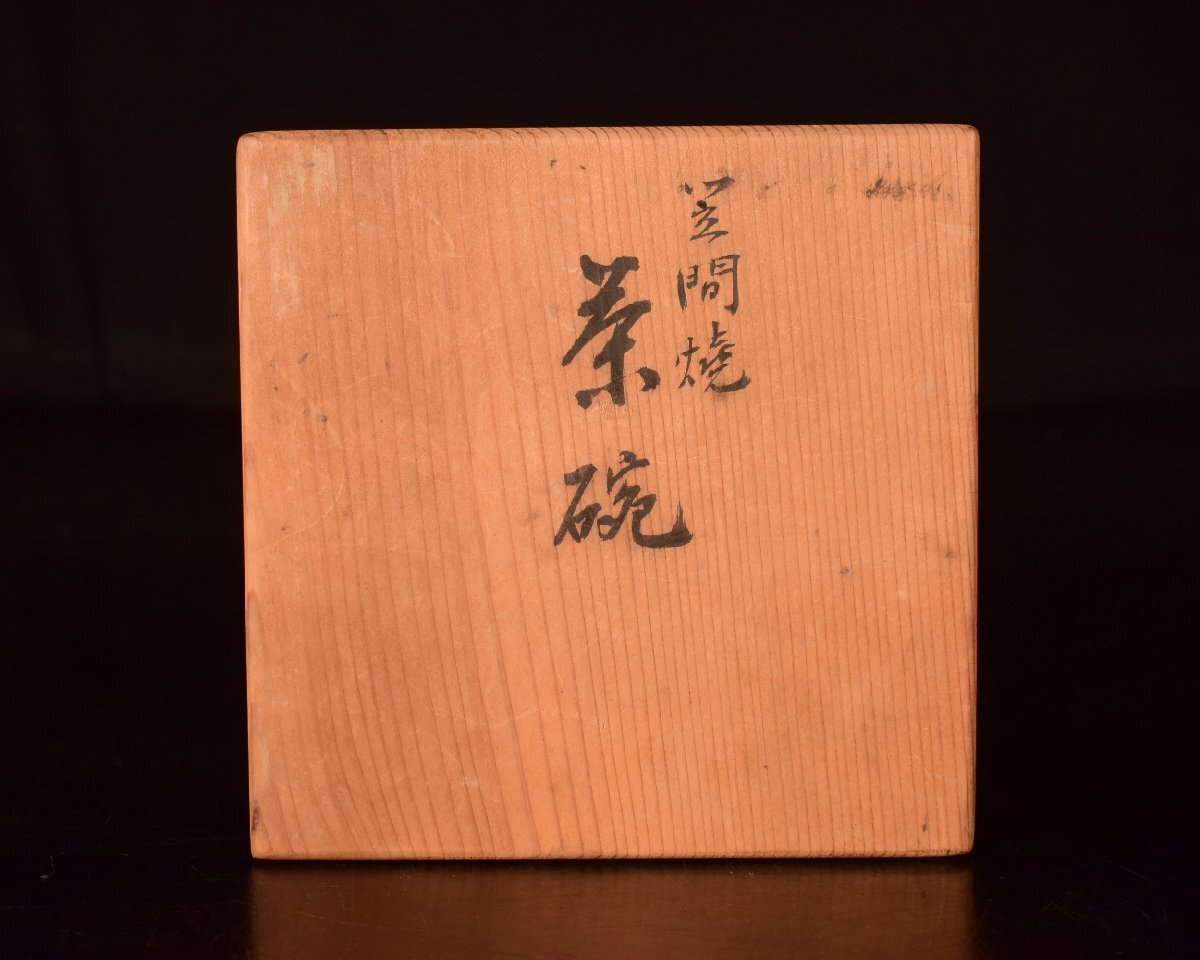 笠間燒
茶碗